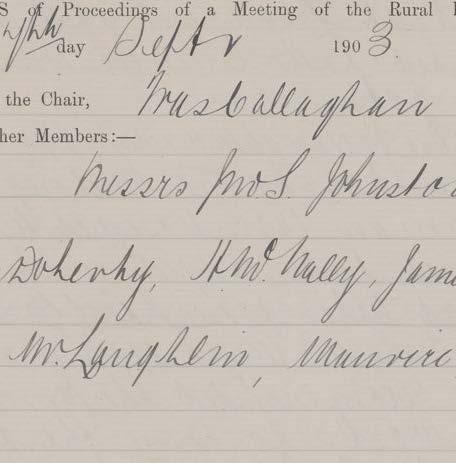 S of Proceedings of a Meeting of the Rural
day Septr 1903.
the Chair, Callaghan
her Members:—
Messrs Jno. S. Johnsto
Doherty, H. Mc. Nally, Jame
Mc. Laughlin,